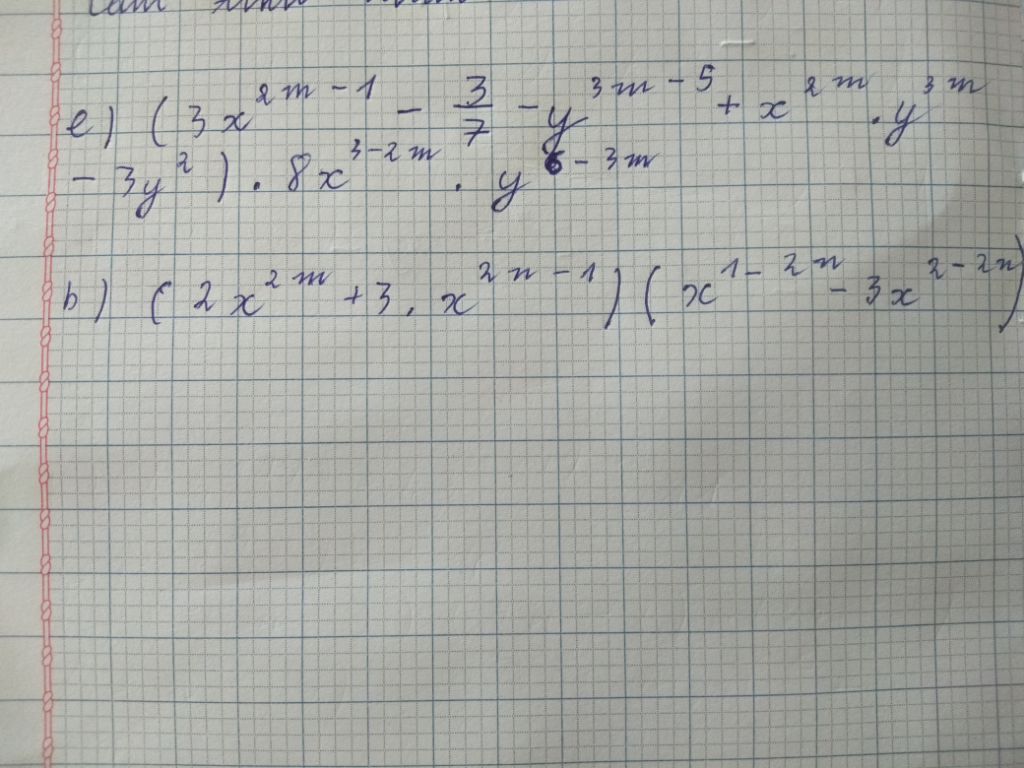 e) (3x^{2m-1} - \frac{3}{7} - y^{3m-5} + x^{2m} . y^{3m}
- 3y^2) . 8x^{3-2m} . y^{6-3m}
b) (2x^{2m} + 3 . x^{2n-1}) (x^{1-2n} - 3x^{2-2n})